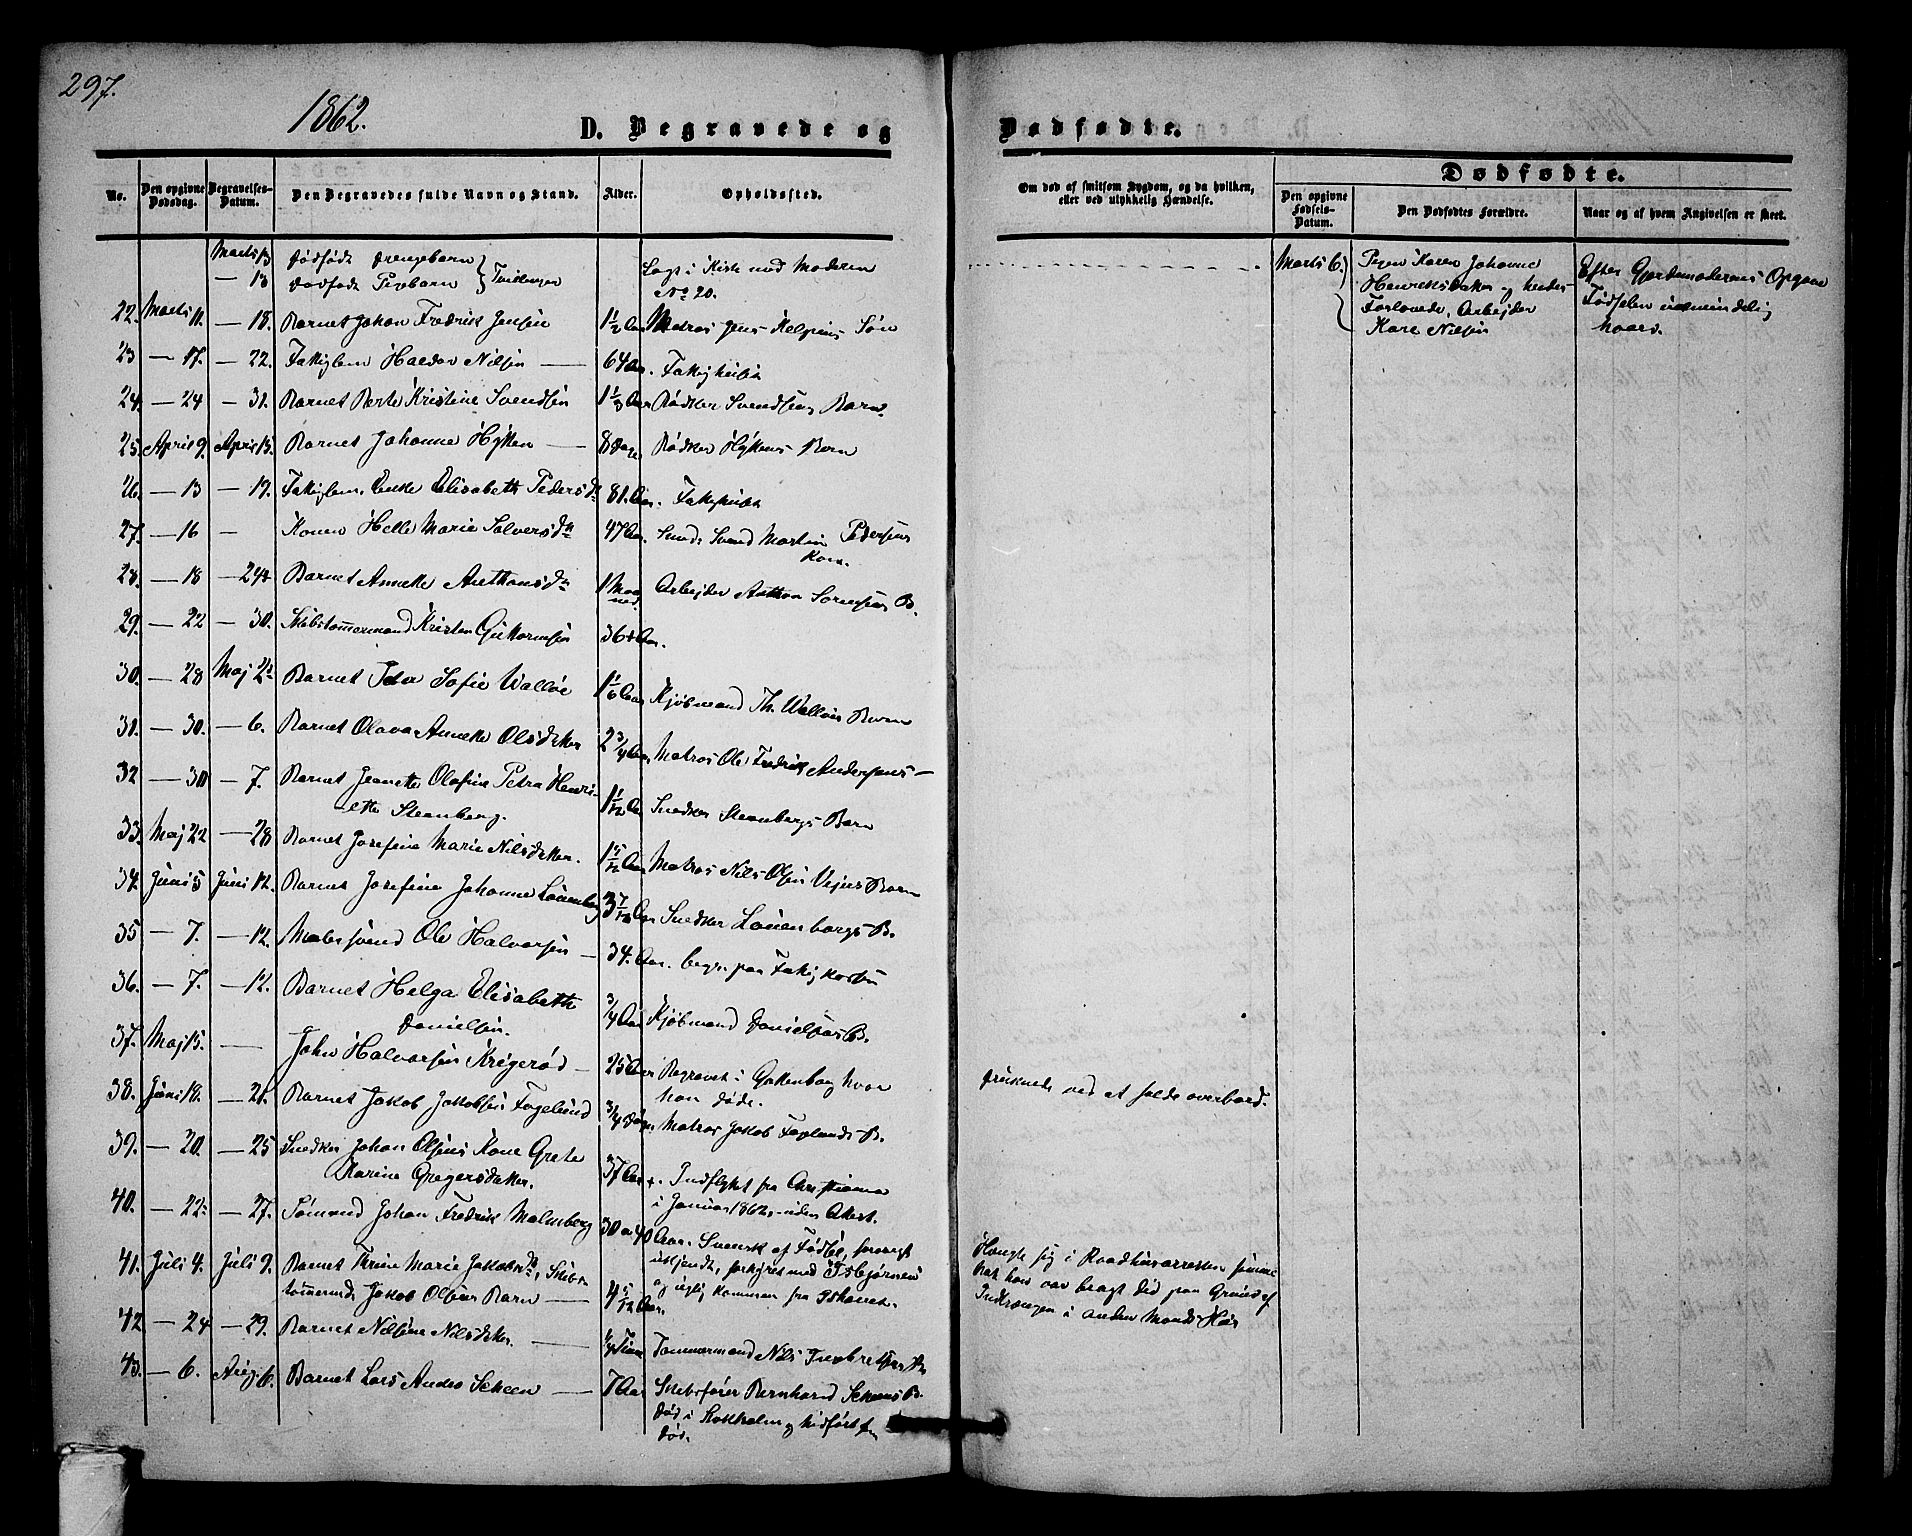 297.
1862.
D. Begravede og
Dødfødte.
No.
Den opgivne Dødsdag.
Begravelses-Datum.
Den Begravedes fulde Navn og Stand.
Alder.
Opholdssted.
Om død af smitsom Sygdom, og da hvilken, eller ved ulykkelig Hændelse.
Dødfødte.
Den opgivne Fødsels-Datum.
Den Dødfødtes Forældre.
Naar og af hvem Angivelsen er skeet.
Marts 13 dødfødt Drengebarn
— 13 dødfødt Pigebarn } Tvillinger Lagt i Kiste med Moderen No 20.
Marts 6. Pigen Karen Johanne
Henriksdatter og hendes
Forlovede, Arbejder
Kare Nilsen
Efter Gjordemoderens Opgave
Fødselen
22. Marts 11. — 18. Barnet Johan Fredrik Jensen 1 1/2 Aar Matros Jens Søn
23 — 17. — 22. Fattiglem Haldor Nilsen — 64 Aar. Fattighuset
24. — 24 — 31. Barnet Berte Kristine Svendsen 1 1/3 Aar Bødker Svendsens Barn
25. April 9. April 15. Barnet Johanne Hytten — 8 Dage Bødker Hyttens Barn
26. — 13 — 19. Fattiglem. Enke Elisabeth Pedersdr 81. Aar. Fattighuset
27. — 16 — Konen Helle Marie Salvesdr 47 Aar. Smed Svend Martin Pedersens Kone.
28. — 18 — 24 Barnet Annette Anthonsdr 1 Maaned. Arbejder Anthon Sørensens B.
29. — 22 — 30. Skibstømmermand Kristen Guttormsen 36 Aar.
30. — 28 Maj 2 Barnet Ida Sofie Walløe 1 1/6 Aar Kjøbmand Th. Walløes Barn
31. — 30. — 6. Barnet Olava Annette Olsdatter 2 3/4 Aar Matros Ole Fredrik Andersens —
32 — 30 — 7. Barnet Jeanette Olefine Petra Henri-
ette Steenberg. 1 1/12 Aar Snedker Steenbergs Barn
33. Maj 22 — 28 Barnet Josefine Marie Nilsdatter. 1 5/12 Aar Matros Nils Olsen Vejes Barn
34. Juni 5 Juni 12. Barnet Josefine Johanne Løuenborg 3 7/12 Aar Snedker Løuenborgs B.
35 — 7. — 12. Malersvend Ole Halvorsen — 34. Aar. begr. paa Fattigkassen
36. — 7. — 12. Barnet Helga Elisabeth
Danielsen. 3/4 Aar Kjøbmand Danielsens B.
37. Maj 15. — John Halvorsen Krigerød — 25 Aar Begravet i Gottenborg hvor
han døde. druknede ved at falde overbord.
38. Juni 18. — 21. Barnet Jakob Jakobsen Fogelund 3/4 Dage Matros Jakob Foglunds B.
39. — 20. — 25 Snedker Johan Olsens Kone Grete
Karine Gregersdatter. 37 Aar. Indflyttet fra Christiania
i Januar 1862, uden Attest.
40. — 22. — 27. Sømand Johan Fredrik Malmberg 30 a 40 Aar. Svensk af Fødsel, forøvrigt
ukjendt,
Hængte sig i Raadhusarresten
hvor han var bragt
41. Juli 4. Juli 9. Barnet Thrine Marie Jakobsdr, Skibs-
tømmermd Jakob Olsens Barn — 4 5/12 Aar.
42 — 24 — 29. Barnet Nilsine Nilsdatter. — 1/4 Time Tømmermand Nils
43. — 6. Aug 6. Barnet Lars Andreas Scheen — 7 Aar Skibsfører Bernhard Scheens B.
død i Stokholm og hidført
død.